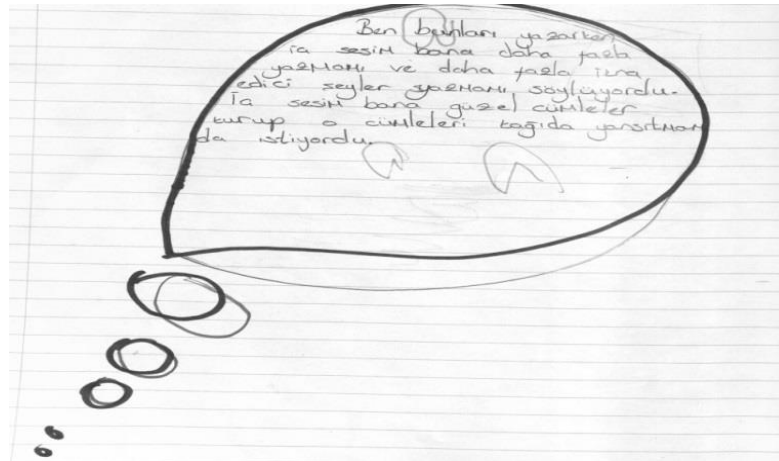 Ben bunları yazarken
iç sesim bana daha fazla
yazmamı ve daha fazla ikna
edici şeyler yazmamı söylüyordu.
İç sesim bana güzel cümleler
kurup o cümleleri kağıda yansıtmamı
da istiyordu.